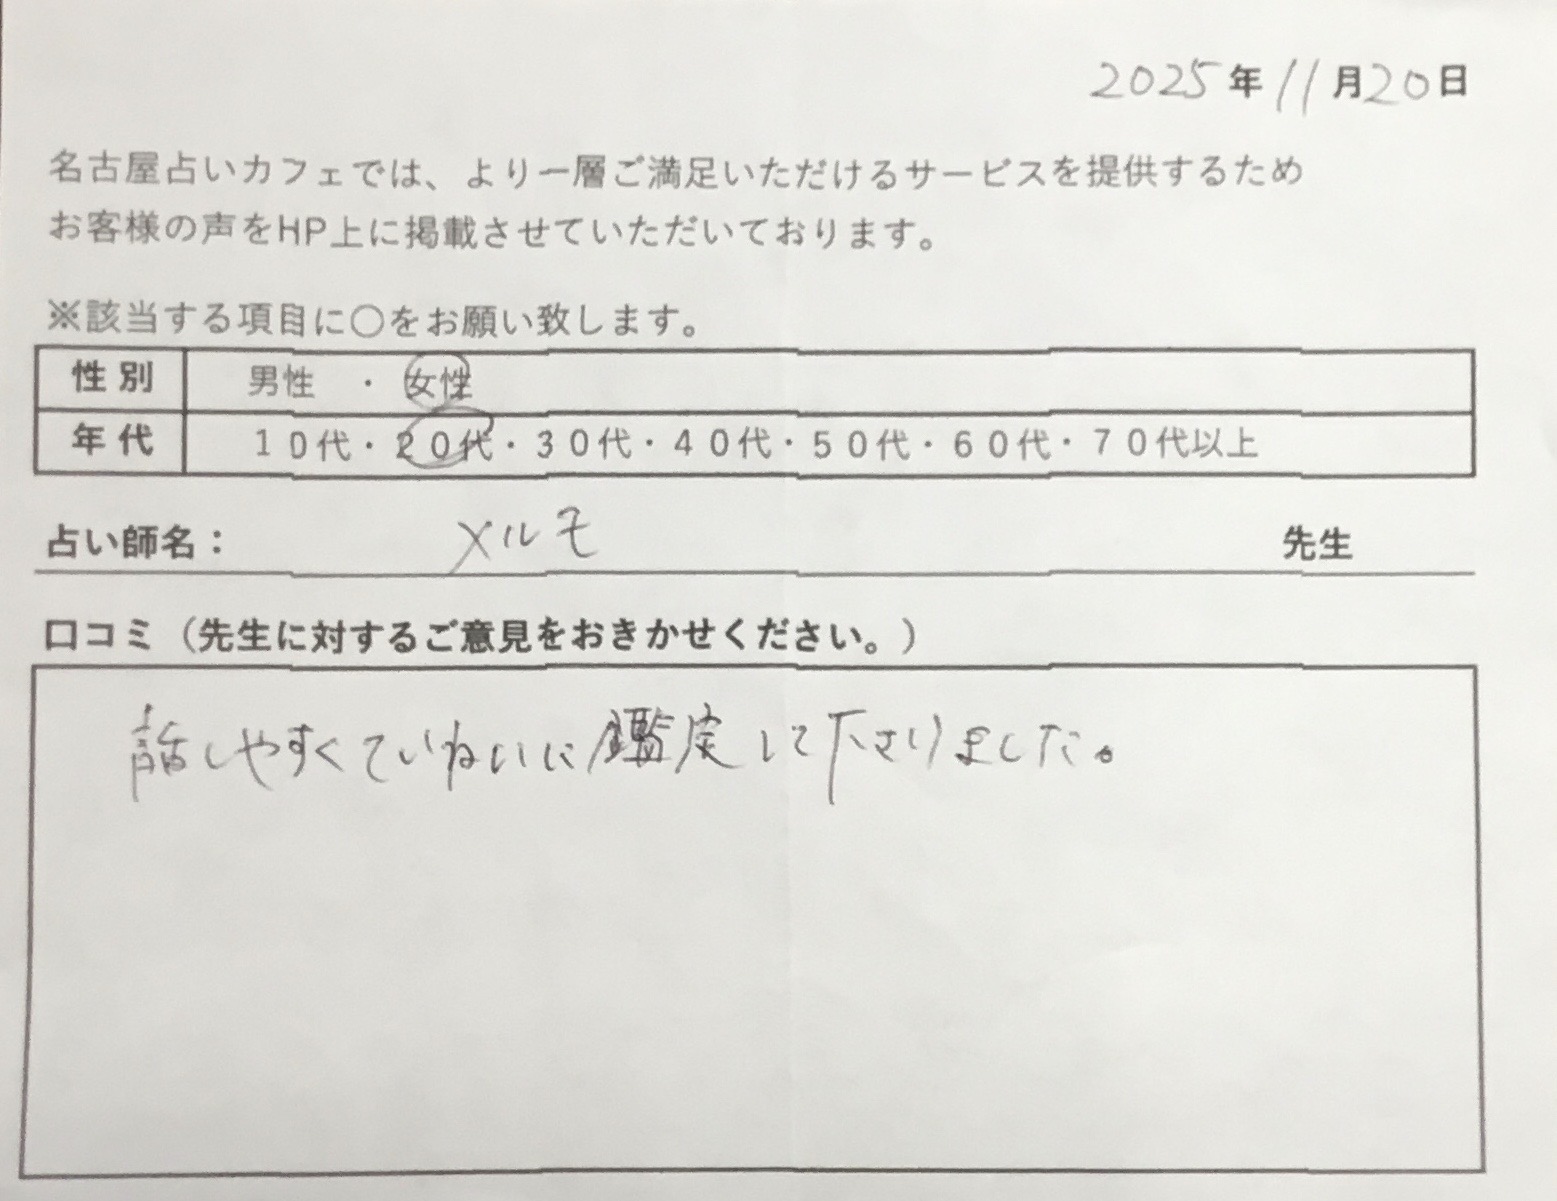 2025年11月20日
名古屋占いカフェでは、より一層ご満足いただけるサービスを提供するため
お客様の声をHP上に掲載させていただいております。
※該当する項目に〇をお願い致します。
性別 男性 ・ 女性
年代 10代・20代・30代・40代・50代・60代・70代以上
占い師名： メルモ 先生
口コミ（先生に対するご意見をおきかせください。）
話しやすくていねいに鑑定して下さりました。